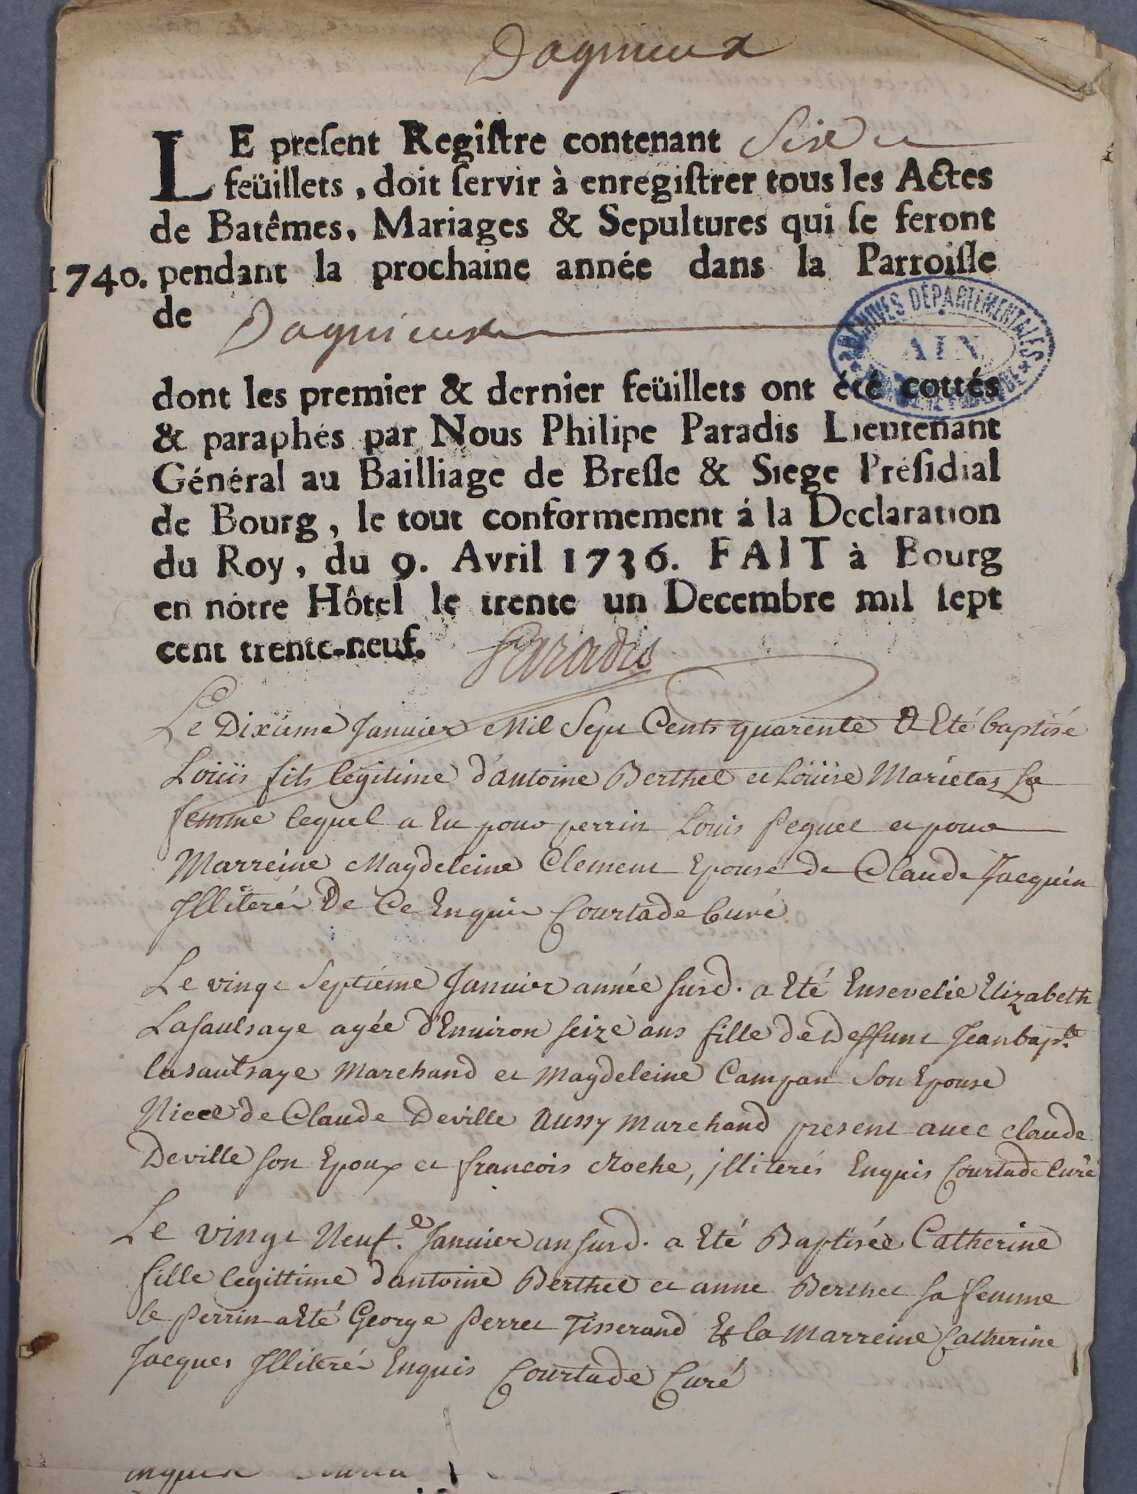 Dagnieux
LE preſent Regiſtre contenant Six
feüillets, doit ſervir à enregiſtrer tous les Actes
de Batêmes, Mariages & Sepultures qui ſe feront
1740. pendant la prochaine année dans la Parroiſſe
de Dagnieux
ARCHIVES DÉPARTEMENTALES
AIN
dont les premier & dernier feüillets ont été cottés
& paraphés par Nous Philipe Paradis Lieutenant
Général au Bailliage de Breſſe & Siege Préſidial
de Bourg, le tout conformement á la Declaration
du Roy, du 9. Avril 1736. FAIT à Bourg
en nôtre Hôtel le trente un Decembre mil ſept
cent trente-neuf. Paradis
Le Dixiéme Janvier Mil Sept Cents quarente a Eté baptisé
Loüis fils legitime d'antoine Berthet et Loüise Marietas Sa
femme lequel a Eu pour perrin Louis peguet et pour
Marreine Magdeleine Clement Epouse de Claude Jacquin
Illiterés De Ce Enquis Courtade Curé
Le vingt Septiéme Janvier année susd. a Eté Ensevelie Elizabeth
Lasaulsaye agée d'Environ seize ans fille de deffunt Jean bapte
lasaulsaye Marchand et Magdeleine Campan Son Epouse
Niece de Claude Deville Aussy marchand present avec claude
Deville son Epoux et francois Roche, jlliterés Enquis Courtade Curé
Le vingt Neuf.e Janvier an susd. a Eté Baptisée Catherine
fille legittime d'antoine Berthet et anne Berthet sa femme
le Perrin a Eté George Perret Tisserand Et la Marreine Catherine
Jacques Illiterés Enquis Courtade Curé